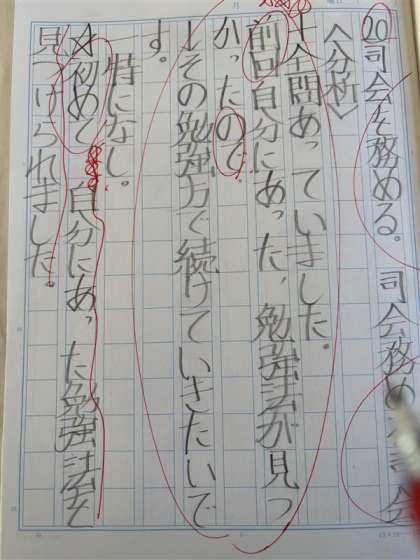 20 司会を務める。 司会務め 司会
〈分析〉
｜全問あっていました。
前回自分にあった、勉強法が見つ
かったので、
｜その勉強方で続けていきたいで
す。
｜特になし。
☆初めて 自分にあった勉強法を
見つけられました。